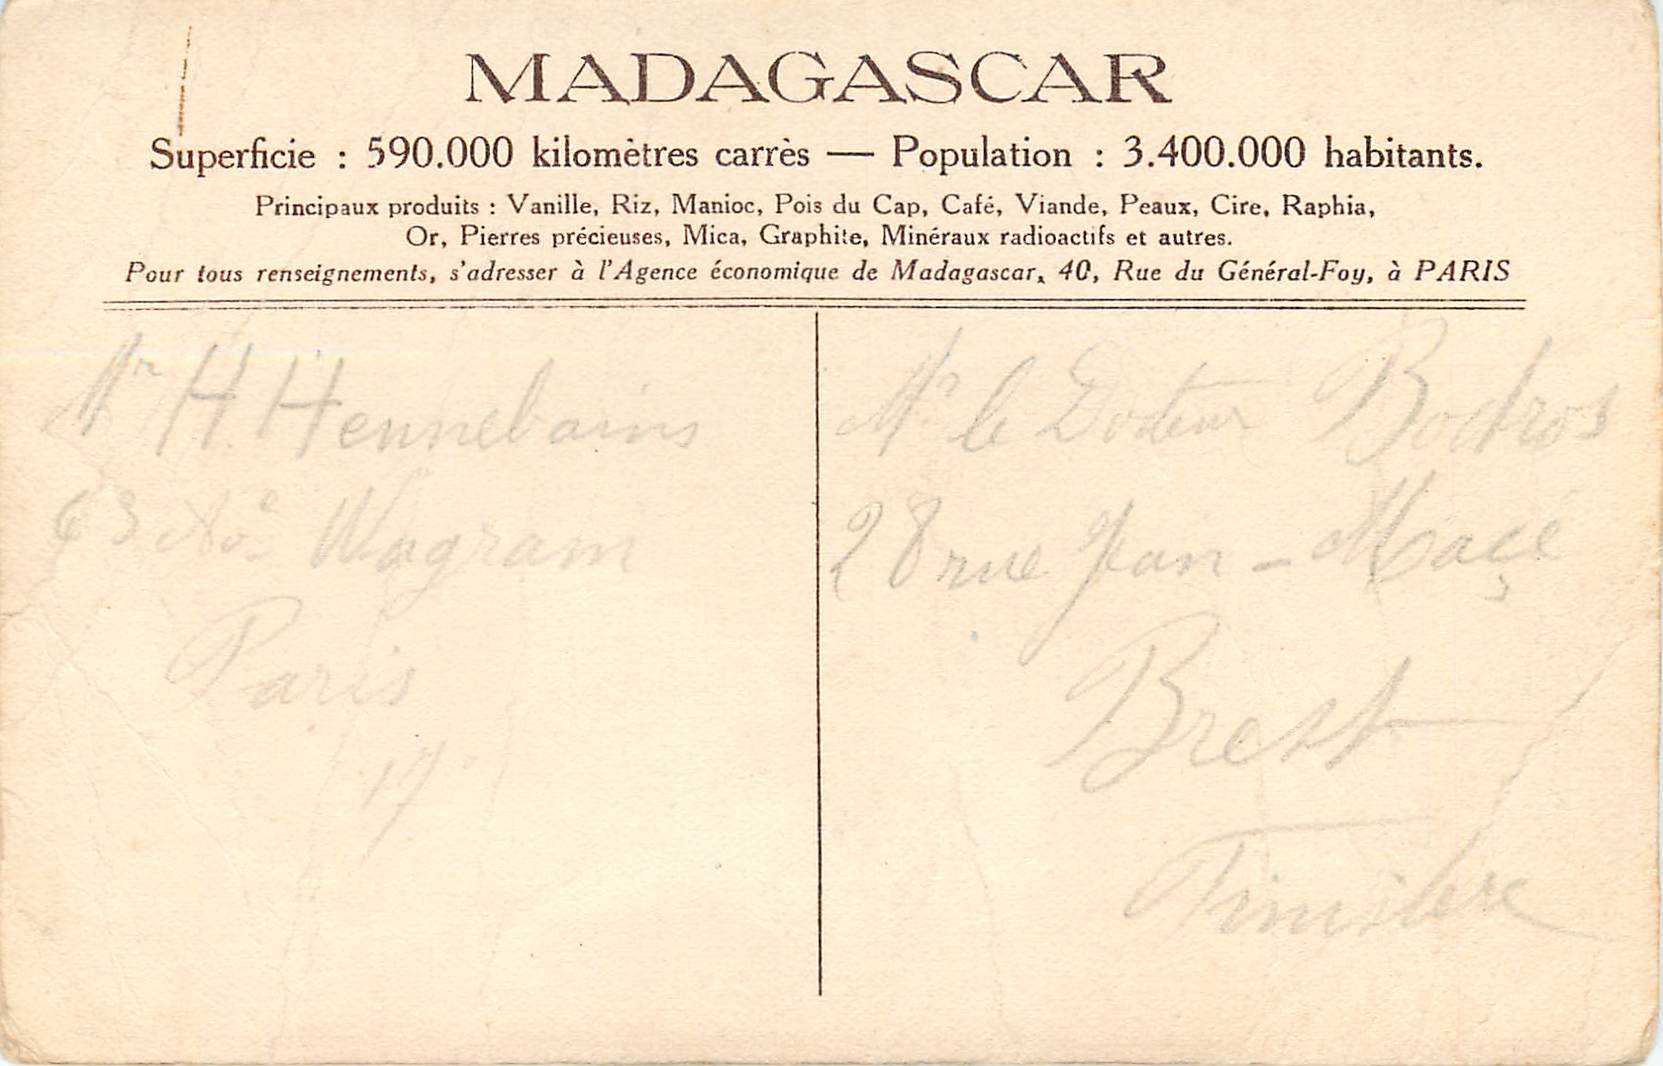 MADAGASCAR
Superficie : 590.000 kilomètres carrès — Population : 3.400.000 habitants.
Principaux produits : Vanille, Riz, Manioc, Pois du Cap, Café, Viande, Peaux, Cire, Raphia,
Or, Pierres précieuses, Mica, Graphite, Minéraux radioactifs et autres.
Pour tous renseignements, s'adresser à l'Agence économique de Madagascar, 40, Rue du Général-Foy, à PARIS
Mr H Hennebains
63 Wagram
Paris
17
Mr le Docteur Bodros
28 rue Jean-Macé
Brest
Finistère